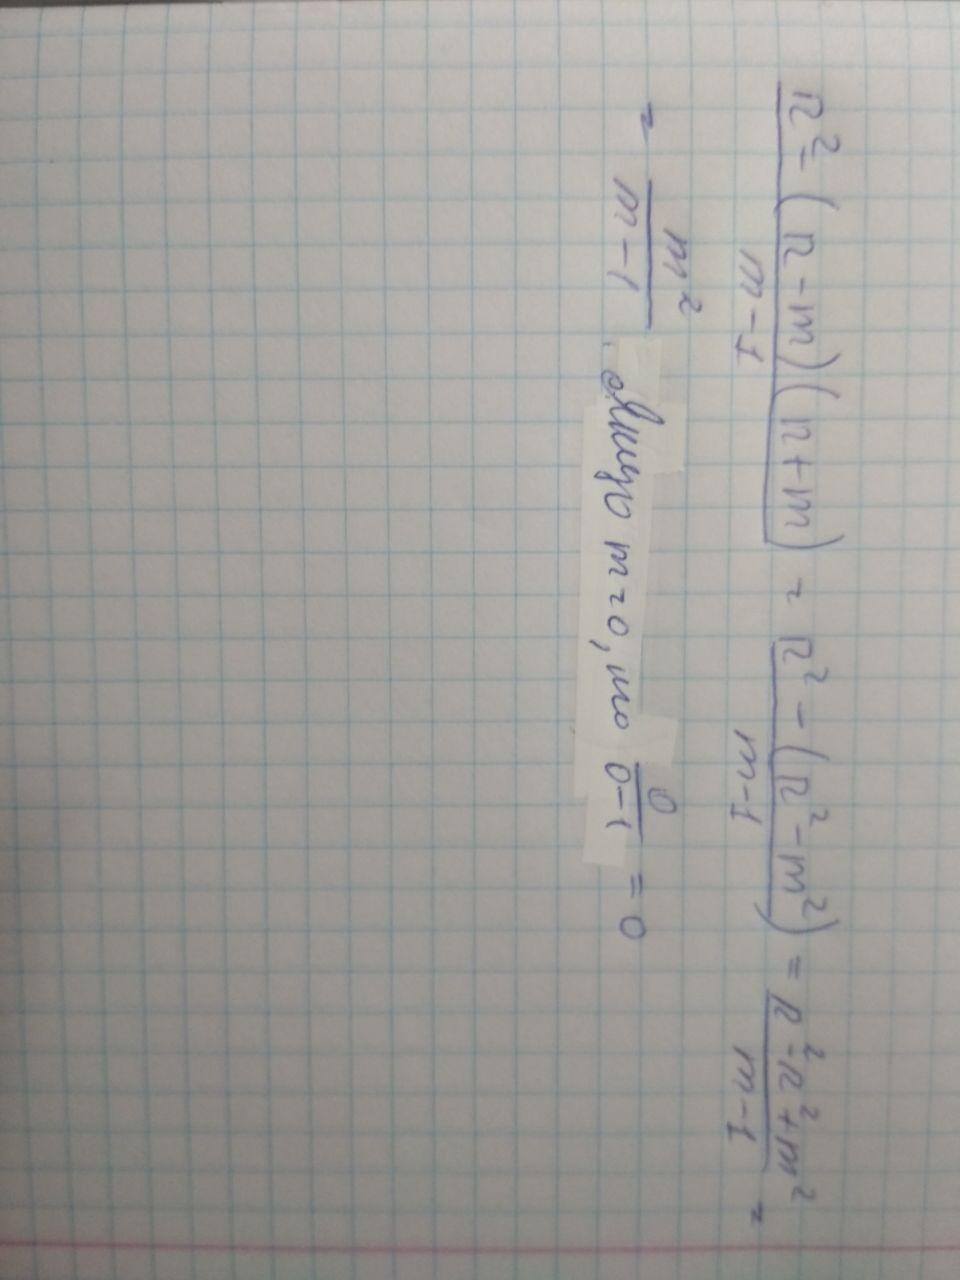 (n² - (n - m)(n + m))/(m - 1) = (n² - (n² - m²))/(m - 1) = (n² - n² + m²)/(m - 1) =
= m²/(m - 1), m = 0, то 0/(0 - 1) = 0